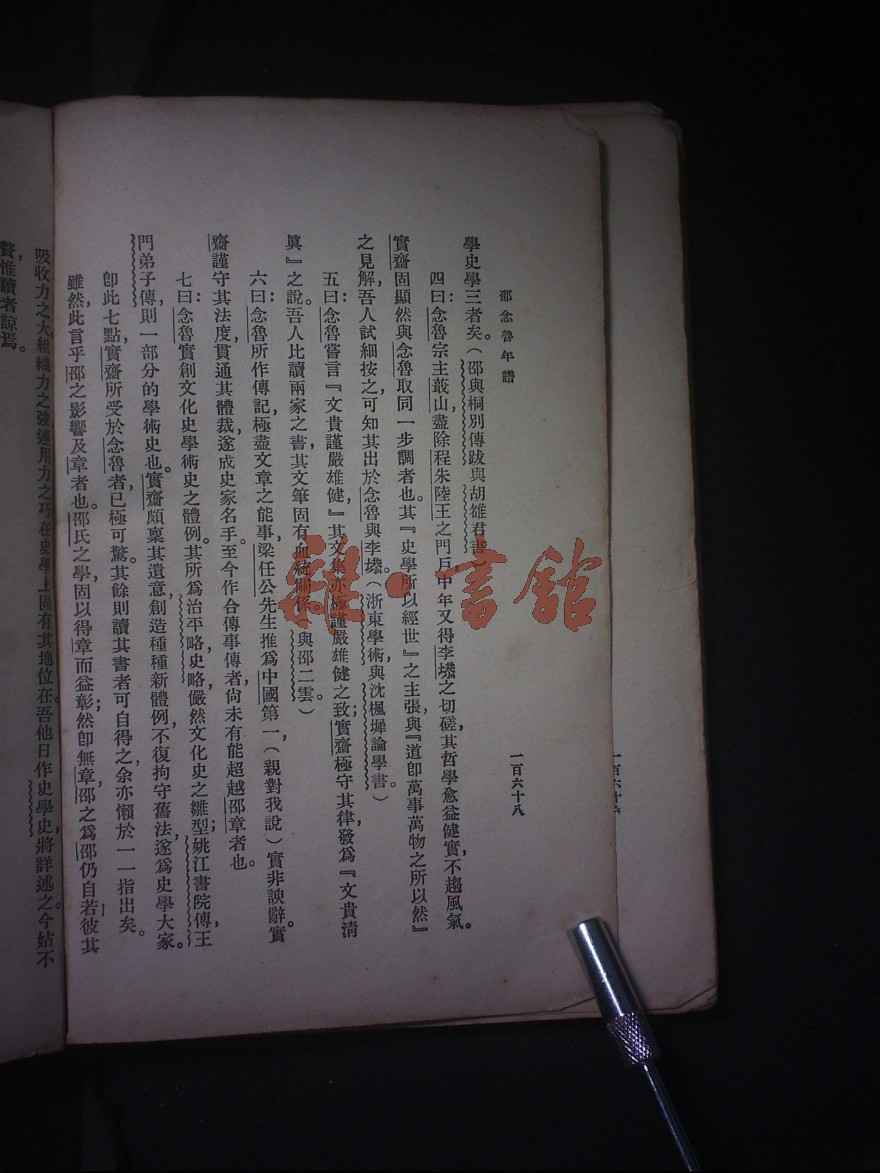 邵念魯年譜
一百六十八
學史學三者矣。（邵與桐別傳跋與胡雒君書）
四曰：念魯宗主蕺山，盡除程朱陸王之門戶，中年又得李塨之切磋，其哲學愈益健實，不趨風氣。
實齋固顯然與念魯取同一步調者也。其『史學所以經世』之主張，與『道卽萬事萬物之所以然』
之見解，吾人試細按之，可知其出於念魯與李塨。（浙東學術與沈楓墀論學書。）
五曰：念魯嘗言『文貴謹嚴雄健，』其文集亦極謹嚴雄健之致；實齋極守其律，發爲『文貴清
眞』之說。吾人比讀兩家之書，其文筆固有血統關係。（與邵二雲）
六曰：念魯所作傳記，極盡文章之能事，梁任公先生推爲中國第一，（親對我說）實非諛辭。實
齋謹守其法度，貫通其體裁，遂成史家名手。至今作合傳事傳者，尙未有能超越邵章者也。
七曰：念魯實創文化史學術史之體例。其所爲治平略史略，儼然文化史之雛型；姚江書院傳王
門弟子傳，則一部分的學術史也。實齋頗稟其遺意，創造種種新體例，不復拘守舊法，遂爲史學大家。
卽此七點，實齋所受於念魯者，已極可驚。其餘則讀其書者可自得之，余亦懶於一一指出矣。
雖然，此言乎邵之影響及章者也。邵氏之學，固以得章而益彰，然卽無章，邵之爲邵仍自若。彼其
吸收力之大，組織力之強，運用力之巧，在史學上固有其地位，在吾他日作史學史，將詳述之。今姑不
贅，惟讀者諒焉。
一百六十
書館